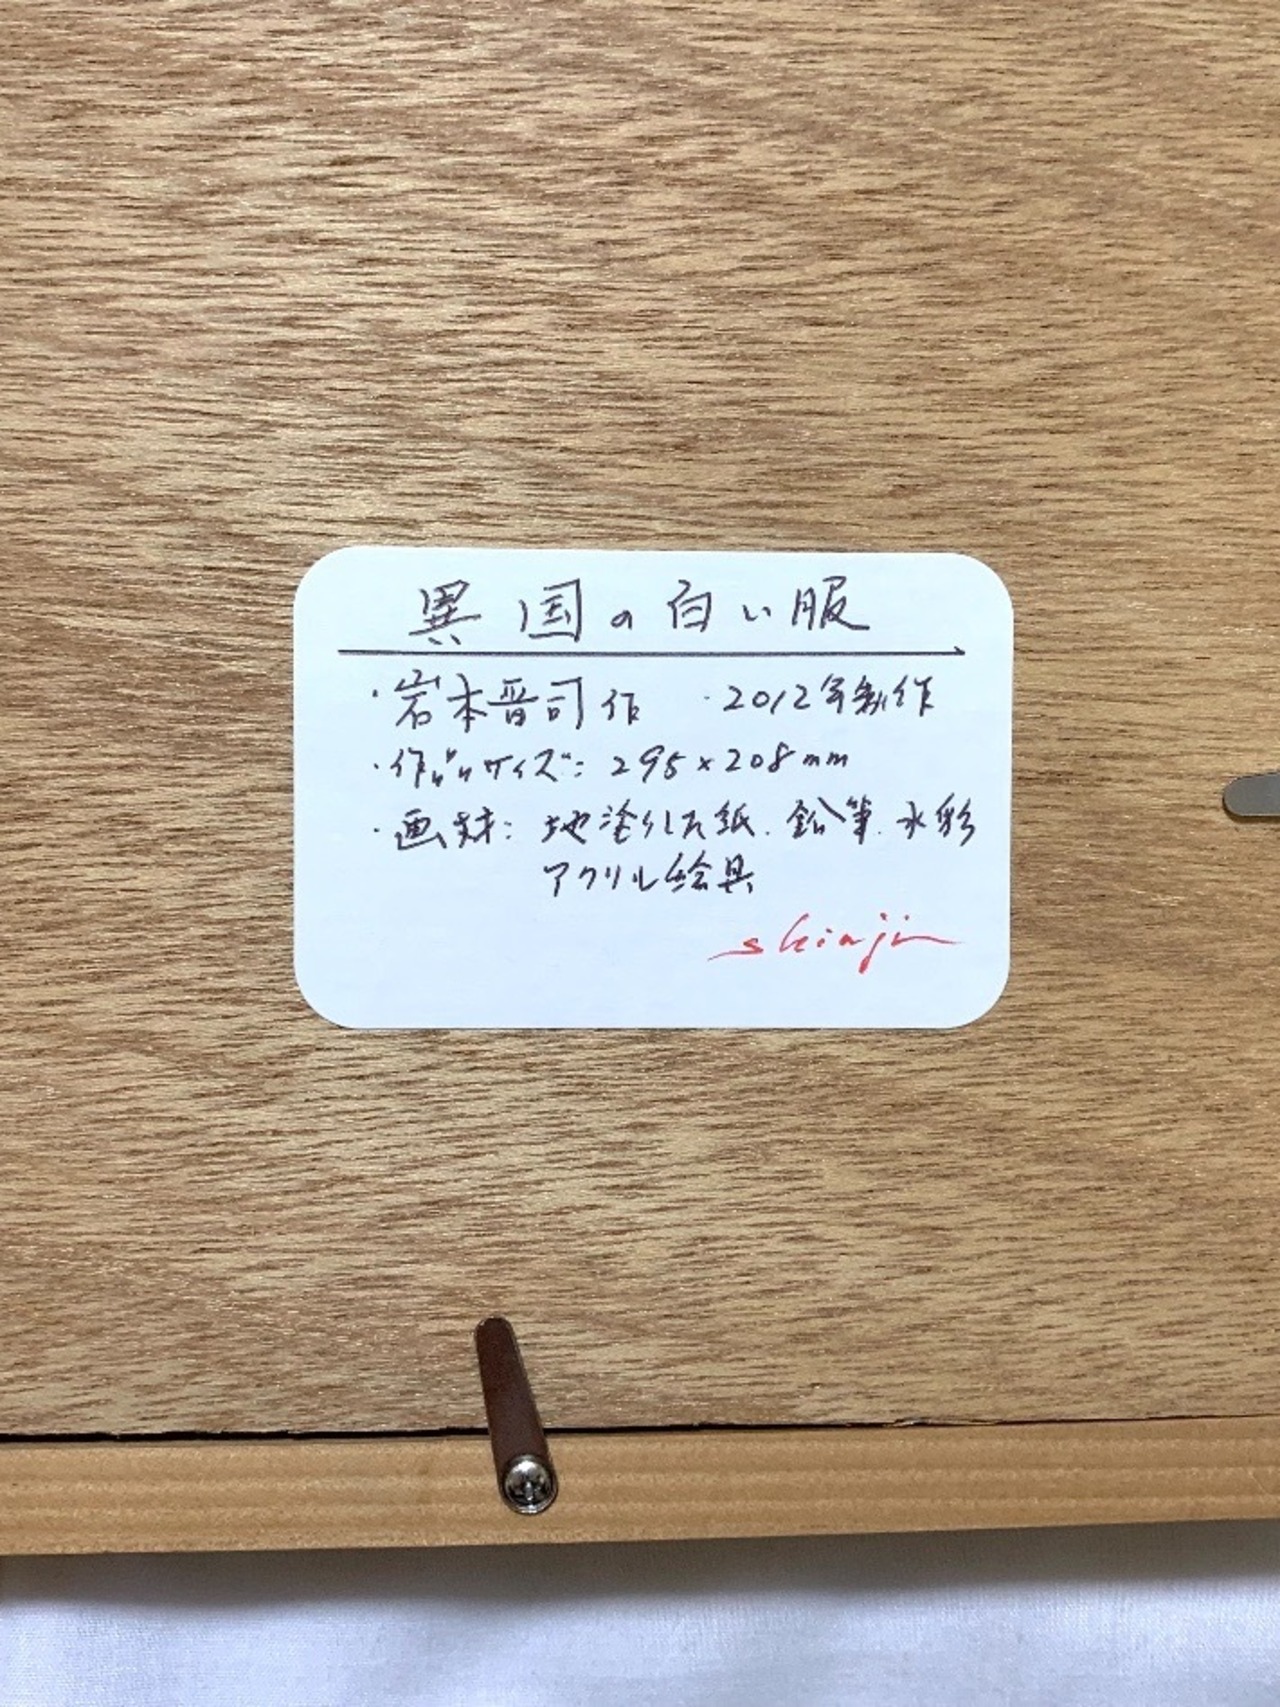 異国の白い服
・岩本晋司作 ・2012年制作
・作品サイズ: 295×208mm
・画材: 地塗りした紙、鉛筆、水彩
アクリル絵具
shinji